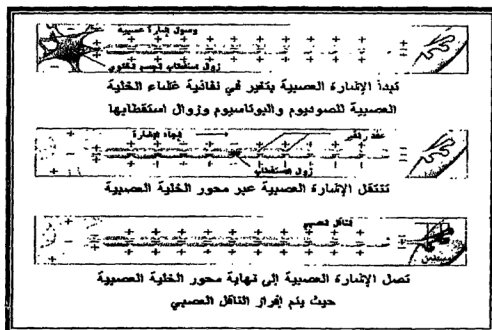 وصول إشارة عصبية
زوال استقطاب الجسم الخلوي
تبدأ الإشارة العصبية بتغير في نفاذية غشاء الخلية
العصبية للصوديوم والبوتاسيوم وزوال استقطابها
اتجاه الإشارة
عقد رانفير
زوال الاستقطاب
تنتقل الإشارة العصبية عبر محور الخلية العصبية
الناقل العصبي
تصل الإشارة العصبية إلى نهاية محور الخلية العصبية
حيث يتم إفراز الناقل العصبي